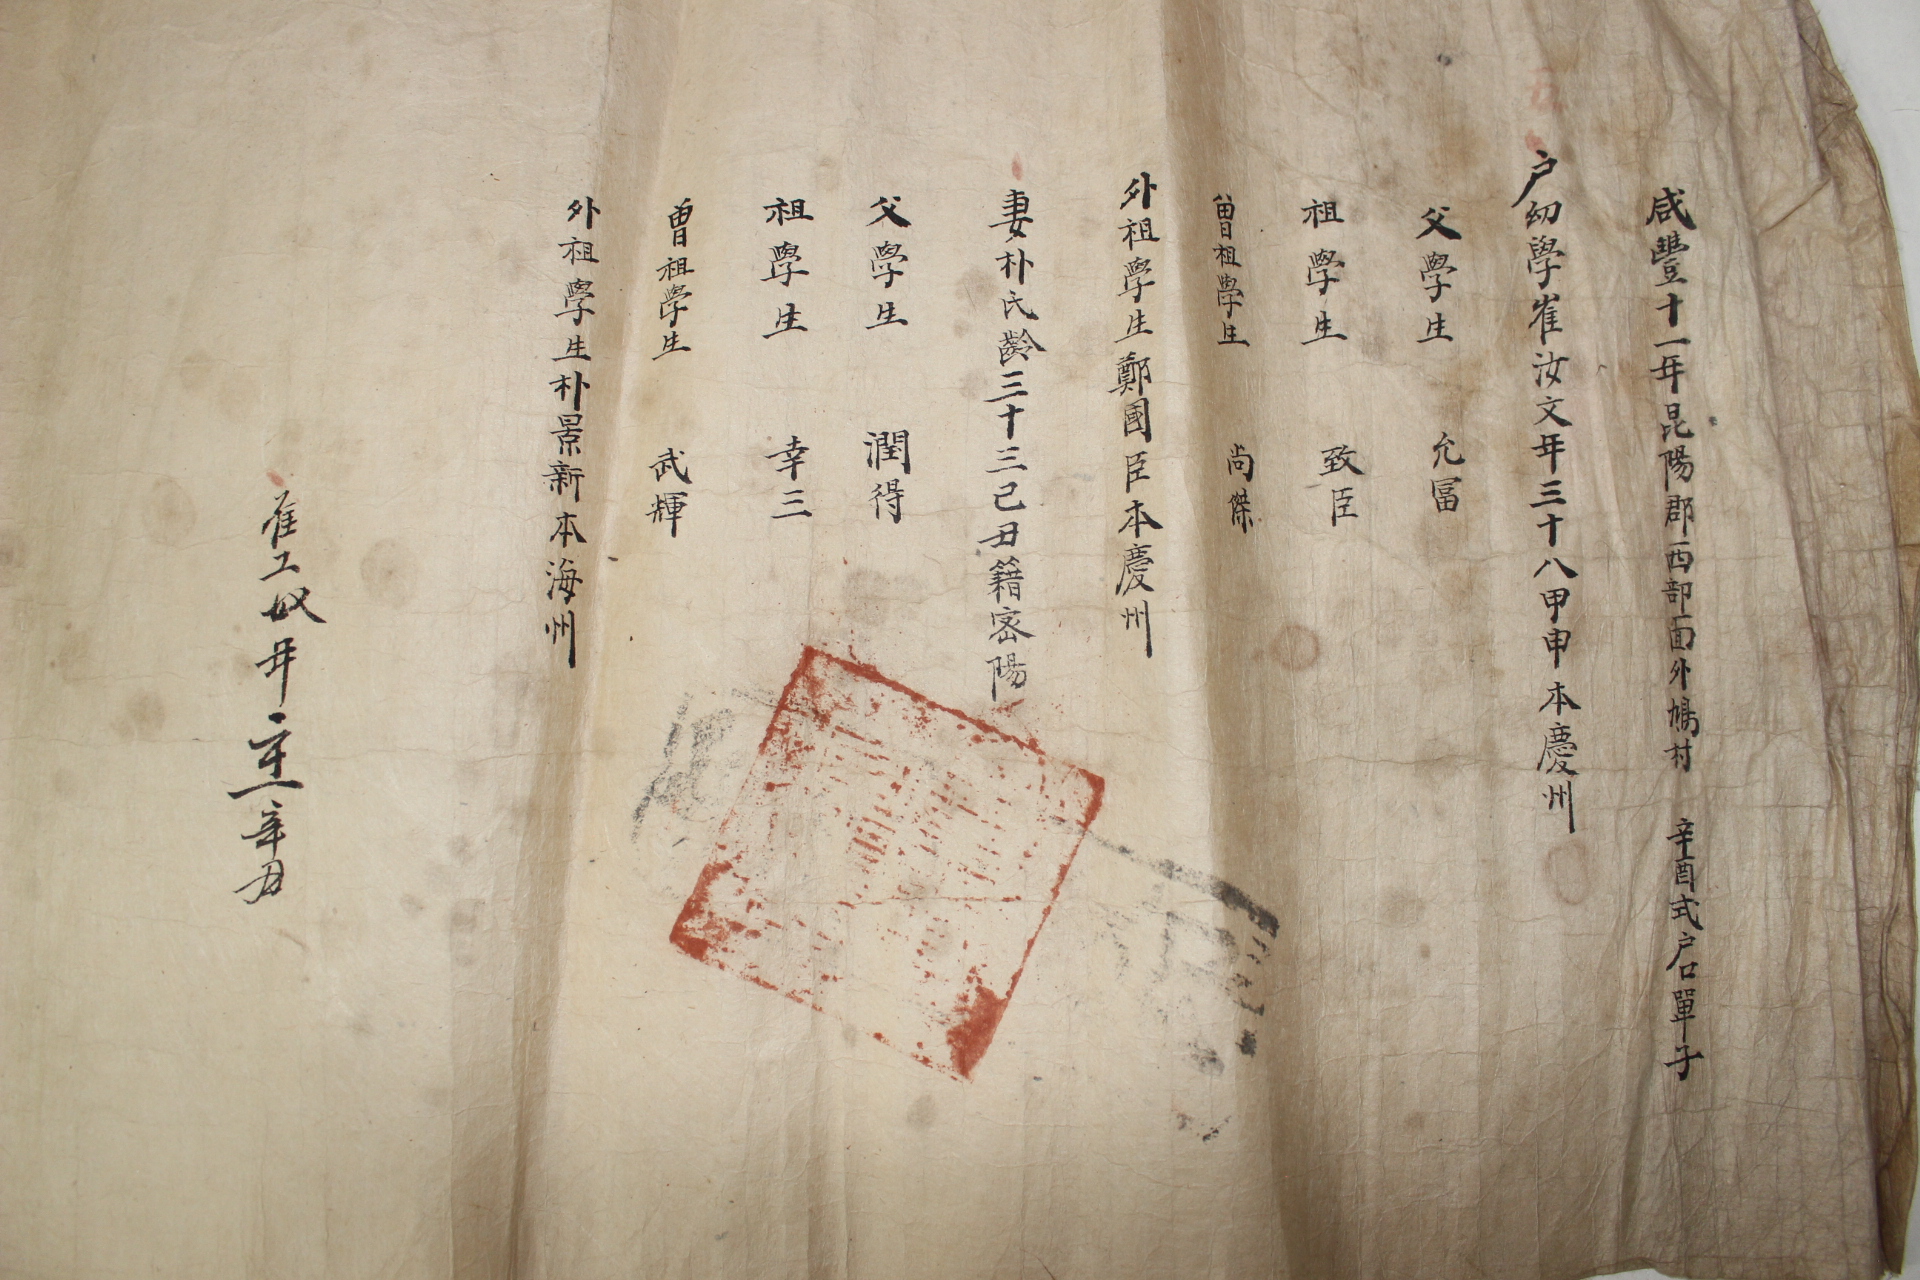 咸豐十一年昆陽郡西部面外鳩村 辛酉式户口單子
户幼學崔汝文年三十八甲申本慶州
父學生 允冨
祖學生 致臣
曾祖學生 尚傑
外祖學生鄭國臣本慶州
妻朴氏齡三十三己丑籍密陽
父學生 潤得
祖學生 幸三
曽祖學生 武輝
外祖學生朴景新本海州
奴年辛丑